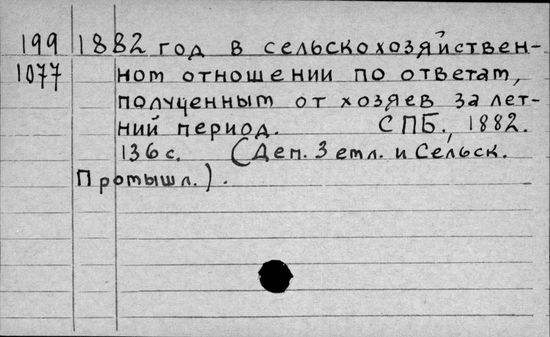 199 1882 год в сельскохозяйствен-
1077 ном отношении по ответам,
полученным от хозяев за лет-
ний период. СПБ., 1882.
136 с. (Деп. Земл. и Сельск.
Промышл.).